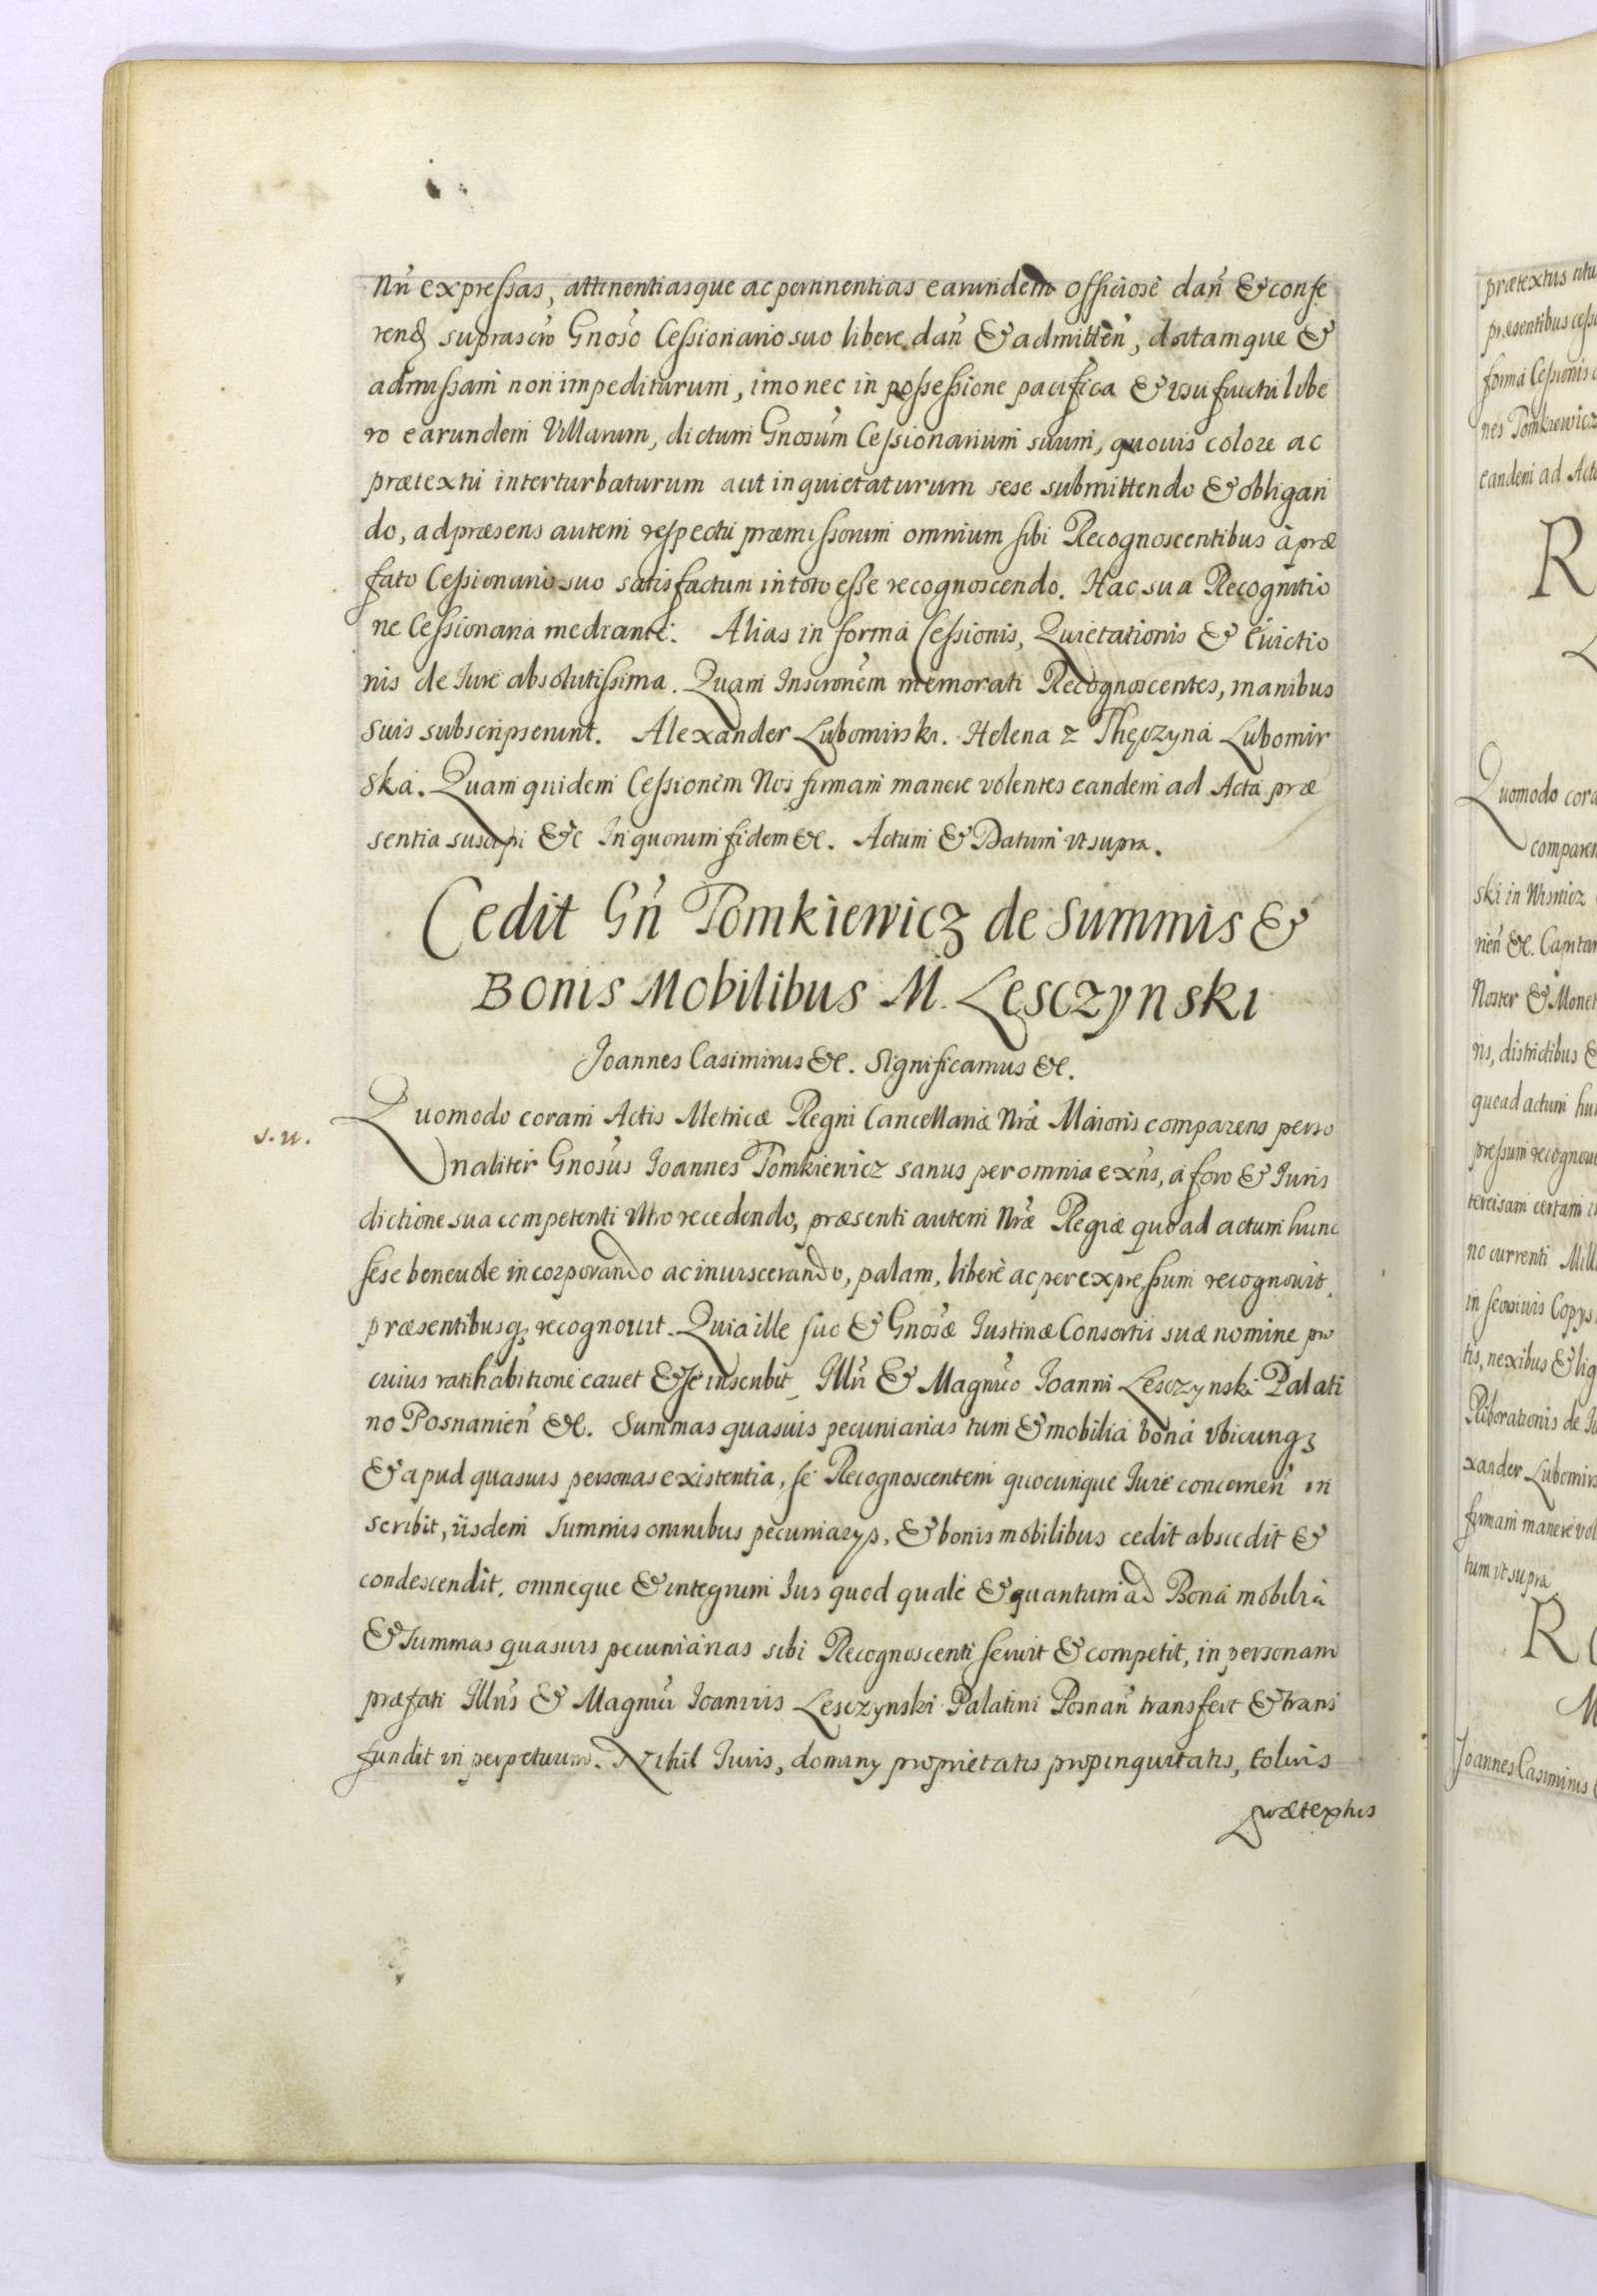 Nrñ expressas, attinentiasque ac pertinentias earundem officiose dañ & confe
rend suprascrō Gnosō Cessionario suo libere dañ & admitteñ, datamque &
admissam non impediturum, imo nec in possessione pacifica & vsufructu libe
ro earundem Villarum, dictum Gnosum Cessionarium suum, quouis colore ac
prætextu interturbaturum aut inquietaturum sese submittendo & obligan
do, ad præsens autem respectu præmissorum omnium sibi Recognoscentibus à præ
fato Cessionario suo satisfactum in toto esse recognoscendo. Hac sua Recognitio
ne Cessionaria mediante. Alias in forma Cessionis, Quietationis & Euictio
nis de Iure absolutissima. Quam Inscronẽm memorati Recognoscentes, manibus
suis subscripserunt. Alexander Lubomirski. Helena z Thęczyna Lubomir
ska. Quam quidem Cessionem Nos firmam manere volentes eandem ad Acta præ
sentia suscepi &c In quorum fidem &c. Actum & Datum vt supra.
Cedit Gñ Tomkiewicz de Summis &
Bonis Mobilibus M. Lesczynski
Joannes Casimirus &c. Significamus &c.
s. u.
Quomodo coram Actis Metricæ Regni Cancellariæ Nræ Maioris comparens perso
naliter Gnosus Joannes Tomkiewicz sanus per omnia exñs, à foro & Iuris
dictione sua competenti vltro recedendo, præsenti autem Nræ Regiæ quo ad actum hunc
sese beneuole incorporando ac inuiscerando, palam, liberè ac per expressum recognouit,
præsentibusq₃ recognouit. Quia ille suo & Gnosæ Iustinæ Consortis suæ nomine pro
cuius ratihabitione cauet & se inscribit, Illri & Magnico Joanni Lesczynski Palati
no Posnanieñ &c. Summas quasuis pecuniarias tum & mobilia bona vbicunq₃
& apud quasuis personas existentia, se Recognoscentem quocunque Iure concerneñ in
scribit, iisdem summis omnibus pecuniarys, & bonis mobilibus cedit abscedit &
condescendit, omneque & integrum Ius quod quale & quantum ad Bona mobilia
& Summas quasuis pecuniarias sibi Recognoscenti seruit & competit, in personam
præfati Illris & Magnici Joannis Lesczynski Palatini Posnañ transfert & trans
fundit in perpetuum. Nihil Iuris, dominy proprietatis propinquitatis, coloris
prætextus
prætextus
præsentibus
forma Cessionis
nes Tomkiewicz
eandem ad Acta
R
Quomodo cora
comparen
ski in Wisnicz
rieñ &c. Capitan
Noster & Monet
ris, districtibus &
quo ad actum hu
pressum recognoui
terecisam certam
no currenti Mill
in Copys
tis, nexibus & lig
xander Lubomirs
firmam manere vol
tum vt supra
R
M
Joannes Casimirus